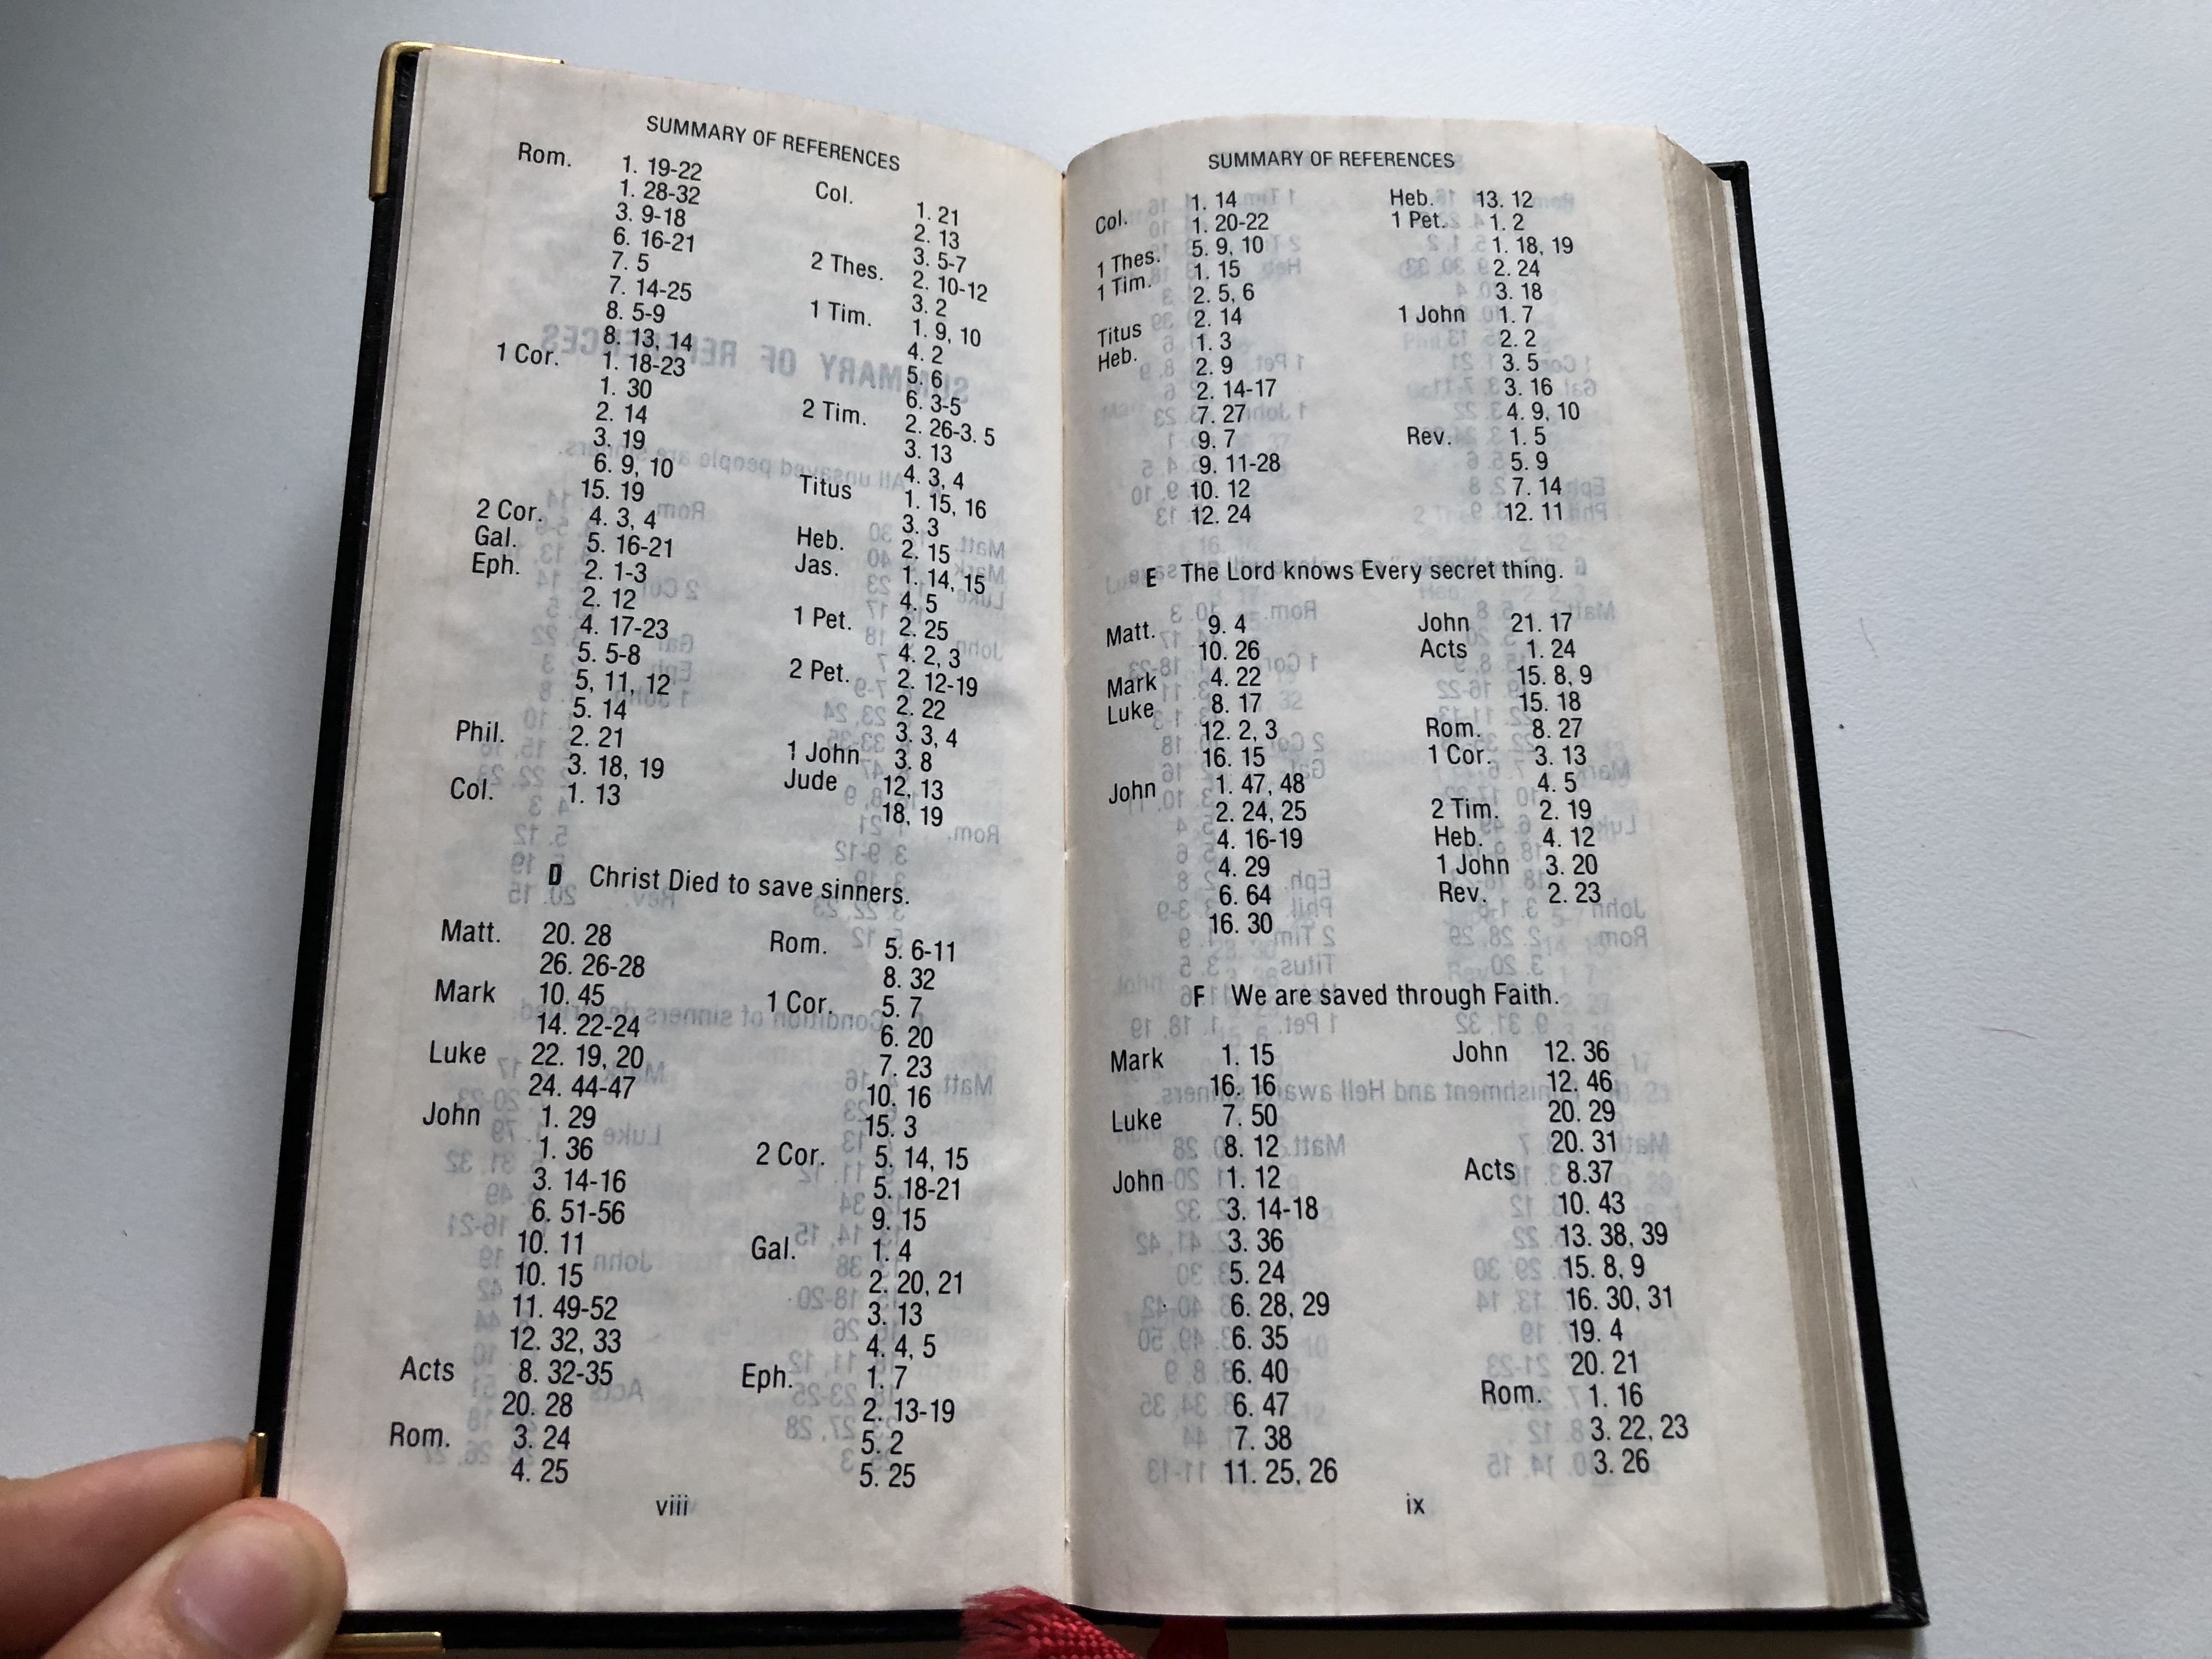 SUMMARY OF REFERENCES
Rom. 1. 19-22
1. 28-32
3. 9-18
6. 16-21
7. 5
7. 14-25
8. 5-9
8. 13, 14
1 Cor. 1. 18-23
1. 30
2. 14
3. 19
6. 9, 10
15. 19
2 Cor. 4. 3, 4
Gal. 5. 16-21
Eph. 2. 1-3
2. 12
4. 17-23
5. 5-8
5, 11, 12
5. 14
Phil. 2. 21
3. 18, 19
Col. 1. 13
Col. 1. 21
2. 13
3. 5-7
2 Thes. 2. 10-12
3. 2
1 Tim. 1. 9, 10
4. 2
5. 6
6. 3-5
2 Tim. 2. 26-3. 5
3. 13
4. 3, 4
Titus 1. 15, 16
3. 3
Heb. 2. 15
Jas. 1. 14, 15
4. 5
1 Pet. 2. 25
4. 2, 3
2 Pet. 2. 12-19
2. 22
3. 3, 4
1 John 3. 8
Jude 12, 13
18, 19
D Christ Died to save sinners.
Matt. 20. 28
26. 26-28
Mark 10. 45
14. 22-24
Luke 22. 19, 20
24. 44-47
John 1. 29
1. 36
3. 14-16
6. 51-56
10. 11
10. 15
11. 49-52
12. 32, 33
Acts 8. 32-35
20. 28
Rom. 3. 24
4. 25
Rom. 5. 6-11
8. 32
1 Cor. 5. 7
6. 20
7. 23
10. 16
15. 3
2 Cor. 5. 14, 15
5. 18-21
9. 15
Gal. 1. 4
2. 20, 21
3. 13
4. 4, 5
Eph. 1. 7
2. 13-19
5. 2
5. 25
viii
SUMMARY OF REFERENCES
Col. 1. 14
1. 20-22
1 Thes. 5. 9, 10
1 Tim. 1. 15
2. 5, 6
Titus 2. 14
Heb. 1. 3
2. 9
2. 14-17
7. 27
9. 7
9. 11-28
10. 12
12. 24
Heb. 13. 12
1 Pet. 1. 2
1. 18, 19
2. 24
3. 18
1 John 1. 7
2. 2
3. 5
3. 16
4. 9, 10
Rev. 1. 5
5. 9
7. 14
12. 11
E The Lord knows Every secret thing.
Matt. 9. 4
10. 26
Mark 4. 22
Luke 8. 17
12. 2, 3
16. 15
John 1. 47, 48
2. 24, 25
4. 16-19
4. 29
6. 64
16. 30
John 21. 17
Acts 1. 24
15. 8, 9
15. 18
Rom. 8. 27
1 Cor. 3. 13
4. 5
2 Tim. 2. 19
Heb. 4. 12
1 John 3. 20
Rev. 2. 23
F We are saved through Faith.
Mark 1. 15
16. 16
Luke 7. 50
8. 12
John 1. 12
3. 14-18
3. 36
5. 24
6. 28, 29
6. 35
6. 40
6. 47
7. 38
11. 25, 26
John 12. 36
12. 46
20. 29
20. 31
Acts 8.37
10. 43
13. 38, 39
15. 8, 9
16. 30, 31
19. 4
20. 21
Rom. 1. 16
3. 22, 23
3. 26
ix